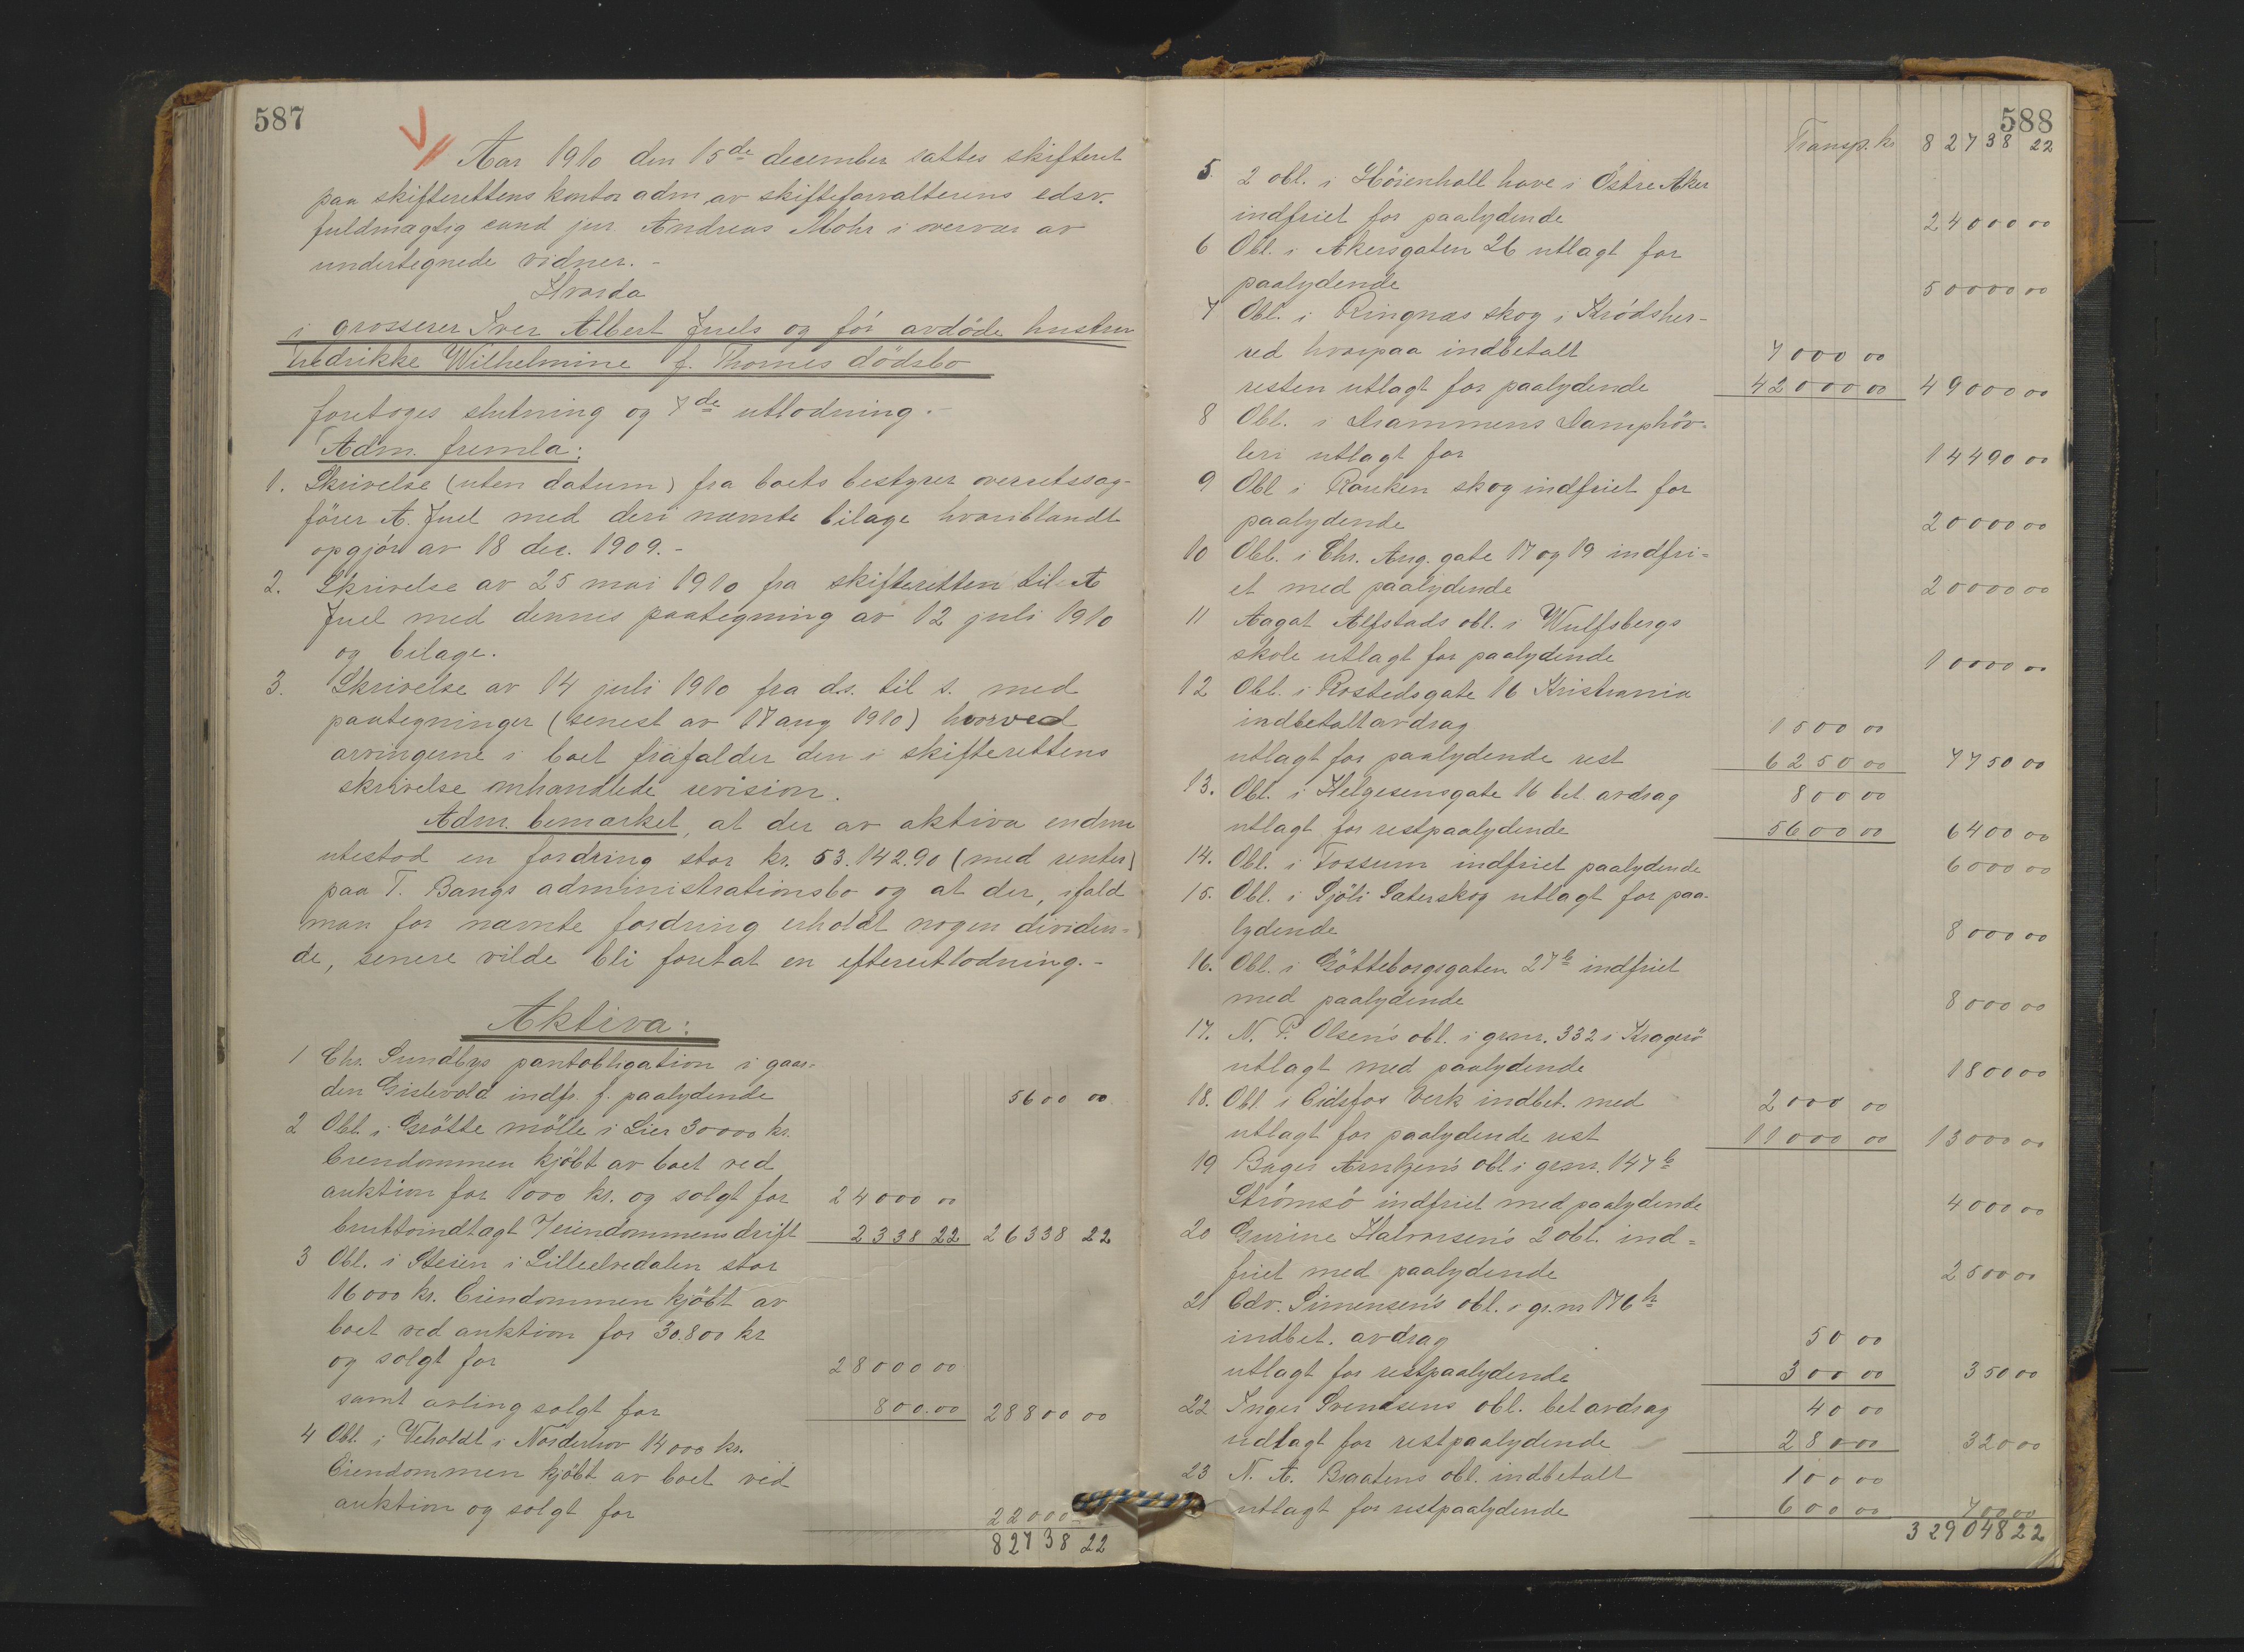 587
Aar 1910 den 15de december sattes skifteret
paa skifterettens kontor adm av skifteforvalterens edsv.
fuldmægtig cand jur. Andreas Mohr i overvær av
undertegnede vidner. -
Hvorda
i grosserer Iver Albert Juels og før avdöde hustru
Fredrikke Wilhelmine f. Thornes dödsbo
foretoges slutning og 7de utlodning. -
Adm. fremla:
1. Skrivelse (uten datum) fra boets bestyrer overretssag-
förer A. Juel med deri nævnte bilage hvoriblandt
opgjör av 18 dec. 1909. -
2. Skrivelse av 25 mai 1910 fra skifteretten til A
Juel med dennes paategning av 12 juli 1910
og bilage.
3. Skrivelse av 14 juli 1910 fra ds. til s. med
paategninger (senest av 17 aug 1910) hvorved
arvingerne i boet frafalder den i skifterettens
skrivelse omhandlede revision.
Adm. bemærket, at der av aktiva endnu
utestod en fordring stor kr. 53.142.90 (med renter)
paa T. Bangs administrationsbo og at der, ifald
man for nævnte fordring erholdt nogen dividen=
de, senere vilde bli foretat en efterutlodning. -
Aktiva:
1 Chr. Sundbys pantobligation i gaar-
den Gislevold indfr. f. paalydende 5600 00
2 Obl. i Grötte mölle i Lier 30000 kr.
Eiendommen kjöbt av boet ved
auktion for 1000 kr. og solgt for 24000 00
bruttoindtagt v/eiendommens drift 2338 22 26338 22
3 Obl. i Steien i Lilleelvedalen stor
16000 kr. Eiendommen kjöbt av
boet ved auktion for 30.800 kr
og solgt for 28000 00
samt avling solgt for 800.00 28800 00
4 Obl. i Veholdt i Norderhov 14000 kr.
Eiendommen kjöbt av boet ved
auktion og solgt for 22000
82738 22
588
Transp. kr 82738 22
5. 2 obl. i Höienhall have i Östre Aker
indfriet for paalydende 24000 00
6 Obl. i Akersgaten 26 utlagt for
paalydende 50000 00
7 Obl. i Ringnæs skog i Krödsher-
red hvorpaa indbetalt 7000 00
resten utlagt for paalydende 42000 00 49000 00
8 Obl. i Drammens Damphöv-
leri utlagt for 14490 00
9 Obl i Rauken skog indfriet for
paalydende 20000 00
10 Obl. i Chr. Aug. gate 17 og 19 indfri=
et med paalydende 20000 00
11 Aagat Alfstads obl. i Wulfsbergs
skole utlagt for paalydende 10000 00
12 Obl. i Rostedsgate 16 Kristiania
indbetalt avdrag 1500 00
utlagt for paalydende rest 6250 00 7750 00
13. Obl. i Helgesensgate 16 bet. avdrag 800 00
utlagt for restpaalydende 5600 00 6400 00
14. Obl. i Fossum indfriet paalydende 6000 00
15. Obl. i Sjöli Sæterskog utlagt for paa-
lydende 8000 00
16. Obl. i Götteborggaten 27b indfriet
med paalydende 8000 00
17. N. P. Olsen's obl. i grnr. 332 i Kragerö
utlagt med paalydende 1800 00
18. Obl. i Eidsfos Verk indbet. med 2000 00
utlagt for paalydende rest 11000 00 13000 00
19 Bager Arntzen's obl i grnr. 147b
Strömsö indfriet med paalydende 4000 00
20 Gurine Halvorsen's 2 obl. ind=
friet med paalydende 2500 00
21 Edv. Simensen's obl. i gr.nr 176b
indbet. avdrag 50 00
utlagt for restpaalydende 300 00 350 00
22 Inger Svendsens obl. bet avdrag 40 00
udlagt for restpaalydende 280 00 320 00
23 N. A. Braatens obl. indbetalt 100 00
utlagt for restpaalydende 600 00 700 00
329048 22